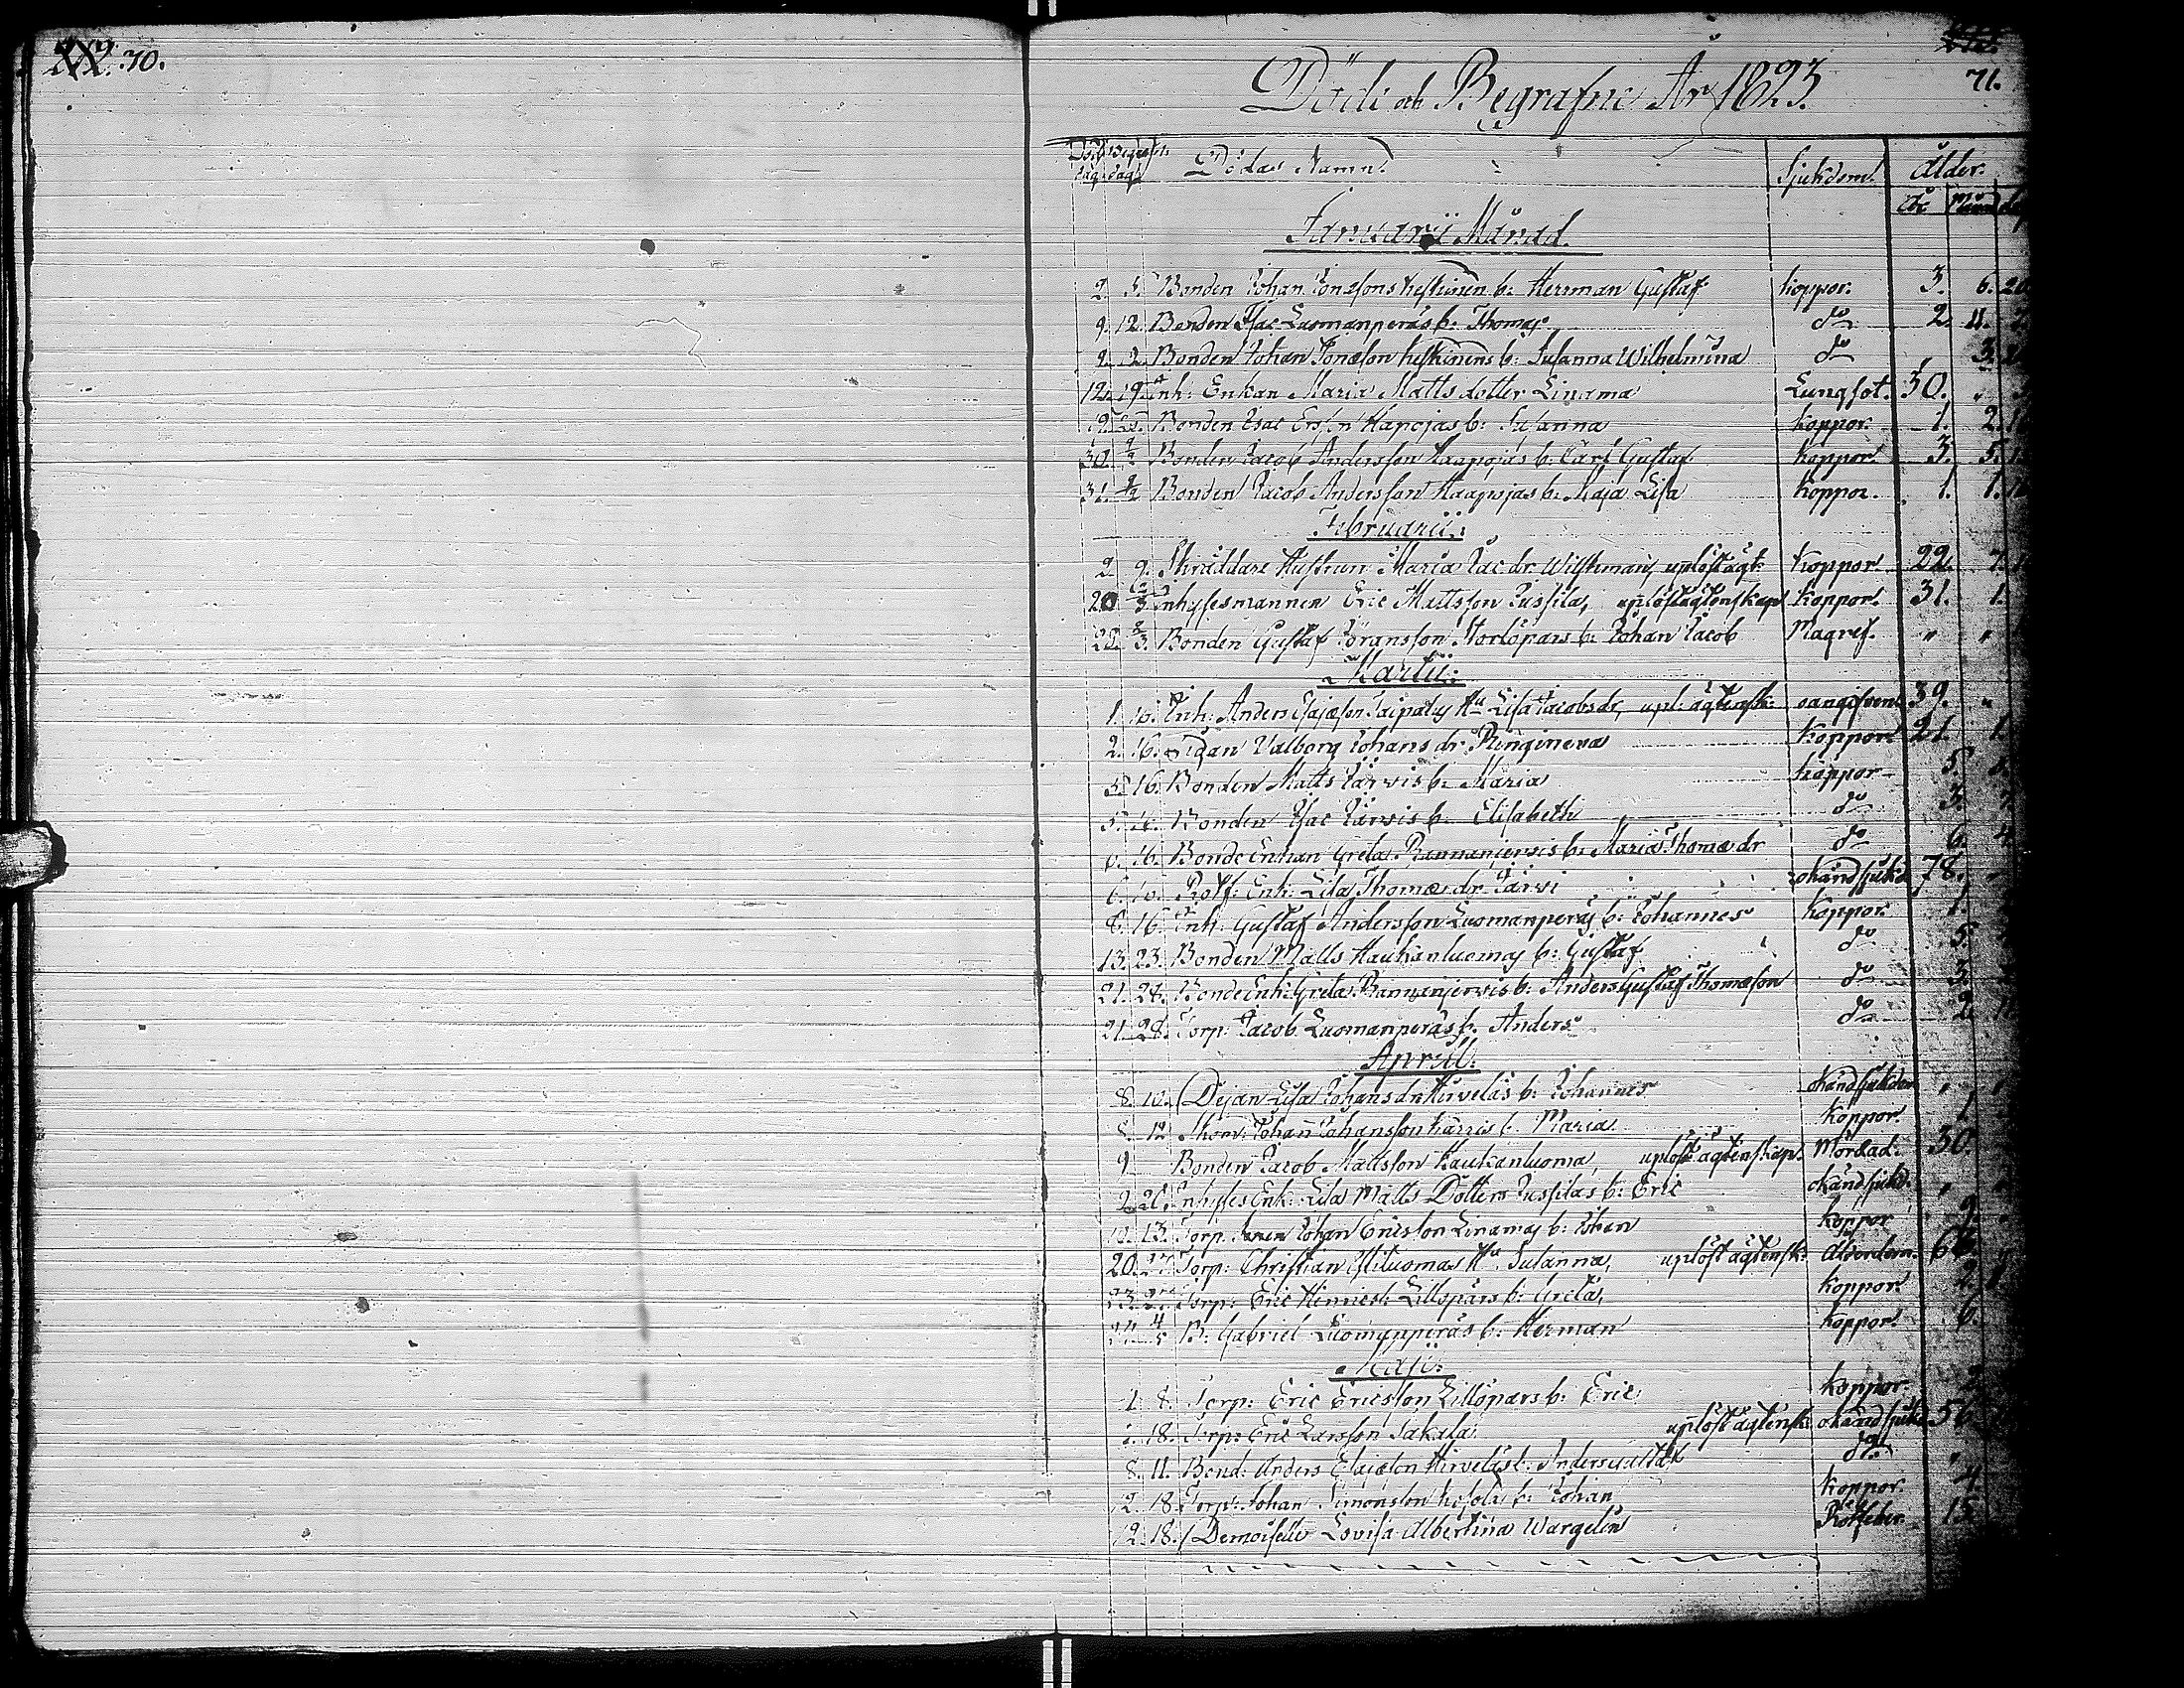 212. 70.
71.
Döde och Begrafne År 1823.
Död dag Begrafn. dag Dödas Namn. Sjukdom. Ålder.
Åhr Månad dag
Januarii Månad.
2. 5. Bonden Johan Jonæsons Keskinen b: Herrman Gustaf koppor. 3. 6.
9. 12. Bonden Isac Luomanperäs b: Thomas do 2. 11.
2. Bonden Johan Jonæson Keskinens b: Susanna Wilhelmina do 3.
12. 19. Inh: Enkan Maria Mattsdotter Linama Lungsot. 30. "
19. Bonden Isac Ersson Hapojas b: Susanna koppor. 1. 2.
30. 9/2 Bonden Jacob Andersson Haapojas b: Carl Gustaf koppor. 3. 5.
31. 9/2 Bonden Jacob Andersson Haapojas b: Maja Lisa koppor. 1. 1.
Februarii:
2. 9. Skräddare Hustrun Maria Isac dr Wilkman, uplöst ägt: Koppor 22. 7.
20 Inhysesmannen Eric Mattsson Jussila, uplöst ägtenskap Koppor. 31. 1.
22. 8/3. Bonden Gustaf Göransson Storlöpars b: Johan Jacob Magref. " "
Martii:
1. 16. Inh: Anders Esajæson Taipalus Hu Lisa Jacobsdr, upl: ägtensk: oangifven 39. "
2. 16. Pigan Valborg Johans dr Ringineva Koppor 21. 1.
5. 16. Bonden Matts Järvis b: Maria koppor 5.
5. 16. Bonden Isac Järvis b: Elisabeth do 3.
6. 16. Bonde Enkan Greta Rannanjervis b: Maria Thomæ dr do 6. 4
6. 16. Rotf: Enk: Lisa Thomæ dr Järvi okänd sjukd. 78. "
8. 16. Inh: Gustaf Andersson Luomanperäs b: Johannes Koppor. 1.
13. 23. Bonden Matts Haukanluomas b: Gustaf do 5.
21. 28. Bonde Enk: Greta Rannanjervis b: Anders Gustaf Thomæson do 3.
21. 28. Torp: Jacob Luomanperäs b: Anders do 2.
April:
8. 10. Dejan Lisa Johans dr Hirveläs b: Johannes okänd sjukdom "
8. 12. Skom: Johan Johansson Karris b: Maria koppor. 1
9 Bonden Jacob Mattsson Haukanluoma, uplöst ägtenskap. Mördad. 30.
20. Inhyses Enk: Lisa Matts Dotters Jussilas b: Eric okänd sjukd. "
13. Torp. Johan Ericsson Linamas b: Johan koppor
20. 27. Torp: Christian Ylituomas Hu Susanna, uplöst ägtensk: Ålderdom. 6
23. 27. Torp: Eric Henrics: Lillöpars b: Greta, Koppor. 2.
4/5 B: Gabriel Luomanperäs b: Herman Koppor. 6.
Maji:
1. 8. Torp: Eric Ericsson Lillöpars b: Eric Koppor. 2
18. Torp: Eric Larsson Jakala uplöst ägtensk: okänd sjukd. 56.
8. 11. Bond: Anders Elaiæson Hirveläs b: Anders Gustaf do. "
12. 18. Torp: Johan Simonsson b: Johan koppor. 4.
12. 18. Demoiselle Lovisa Albertina Wargelin Rötfeber. 15.